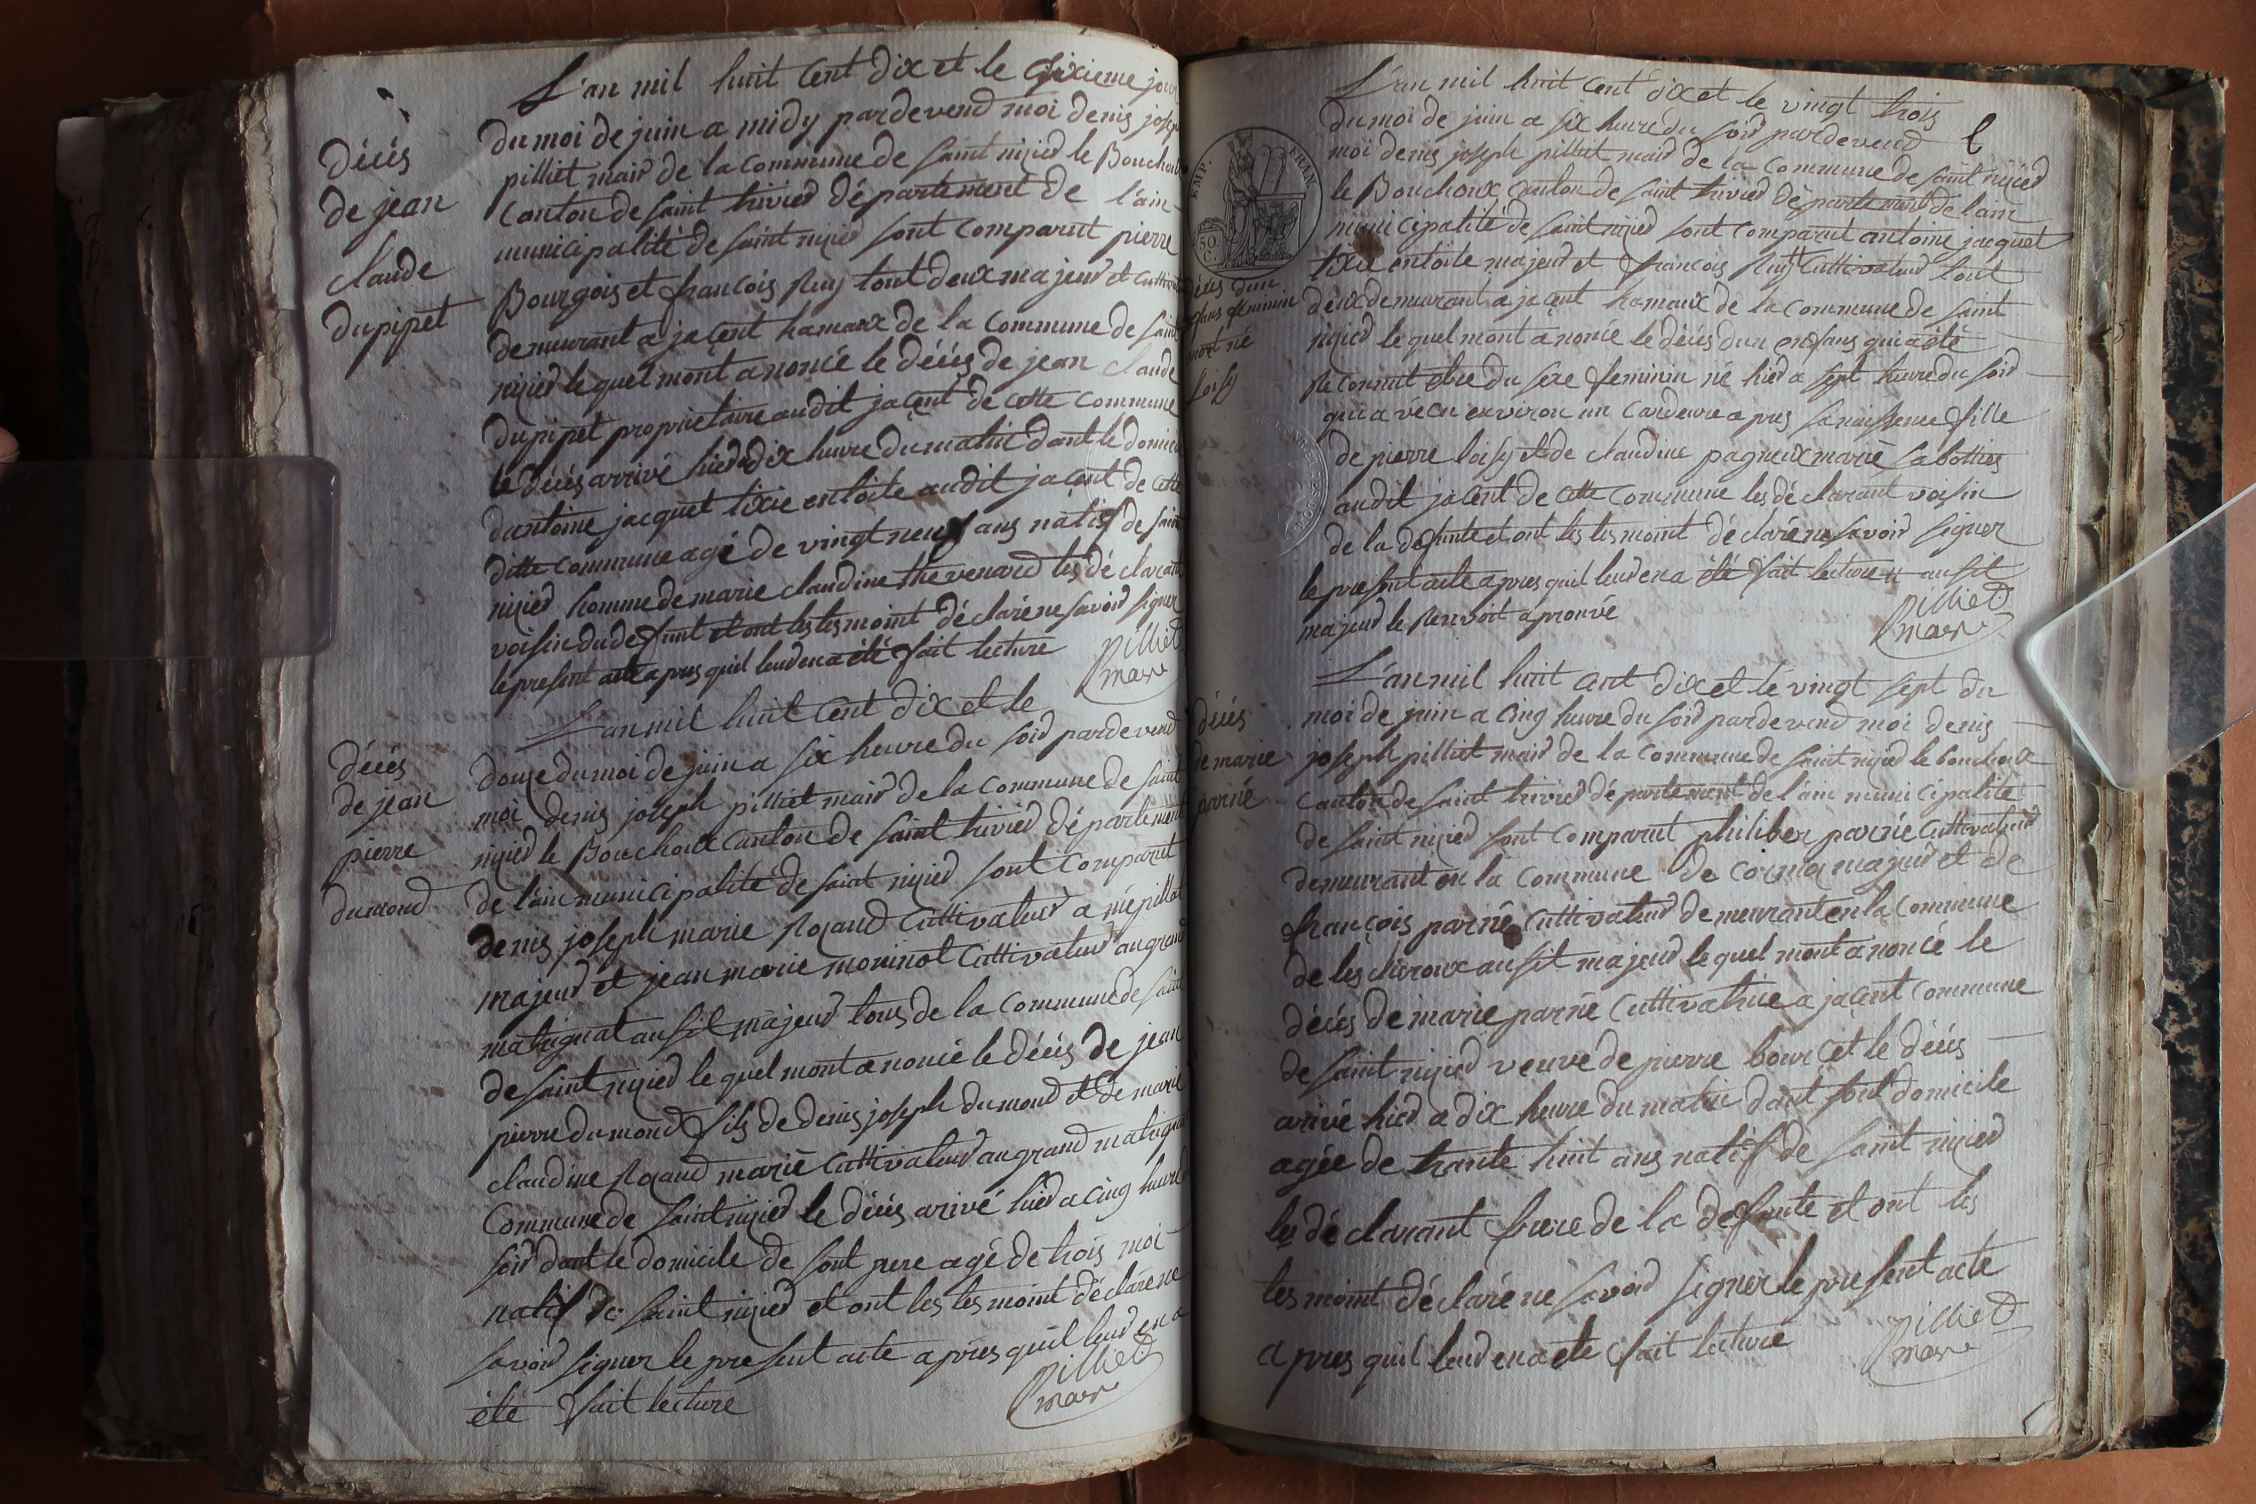 L'an mil huit cent dix et le sixieme jour
décés
de jean
claude
dupipet
du moi de juin a midy pardevend moi denis joseph
pilliet mair de la commune de saint nizied le Bouchoux
canton de saint trivied département de l'ain
municipalité de saint nizied sont comparut pierre
Bourgois et francois Ruy tout deux majeur et cuttiv
demeurant a jacent hamaux de la commune de saint
nizied le quel mont anoncé le décés de jean claude
dupipet proprietaire audit jacent de cette commune
le décés arrivé hied a dix heure du matin dant le domicil
dantoine jacquet tixie entoile audit jacent de cette
ditte commune agé de vingt neuf ans natif de saint
nizied homme de marie claudine thevenard les déclarant
voisin du defunt et ont les tesmoint déclaré ne savoir signer
le present acte apres quil leud en a été fait lecture
Pilliet
mair
décés
de jean
pierre
dumond
L'an mil huit cent dix et le
douze du moi de juin a six heure du soid pardevend
moi denis joseph pilliet maird de la commune de saint
nizied le Bouchoux canton de saint trivied département
de l'ain municipalité de saint nizied sont comparut
denis joseph marie Rozand cuttivateur a mépillat
majeud et jean marie moninot cuttivateud au grand
matrignat ausit majeud tous de la commune de saint
de saint nizied le quel mont anoncé le décés de jean
pierre dumond fils de denis joseph dumond et de marie
claudine Rozand marié cuttivateud au grand matrignat
commune de saint nizied le décés arivé hied a cinq heure
soir dant le domicile de sont pere agé de trois moi
natif de saint nizied et ont les tesmoint déclaré ne
savoir signer le present acte apres quil leud en a
été fait lecture
Pilliet
mair
L'an mil huit cent dix et le vingt trois
du moi de juin a six heure du soid pardevend
moi denis joseph pilliet maird de la commune de saint nizied
le Bouchoux canton de saint trivied département de l'ain
TEMP. FRAN.
50
C.
décés dun
enfans feminin
mort né
loisy
municipalité de saint nizied sont comparut antoine jacquet
tixie entoile majeud et francois Ruy cuttivateud tout
deux demeurant a jacent hamaux de la commune de saint
nizied le quel mont anoncé le décés dun enfans qui a été
Reconnut etre du sexe feminin né hied a sept heure du soid
qui a vécu environ un cardeure apres sa naissence fille
de pierre loisy et de claudine pagneux marié sabottier
audit jacent de cette commune les déclarant voisin
de la defunte et ont les tesmoint déclaré ne savoir signer
le present acte apres quil leud en a été fait lecture ausit
majeud le Renvoit aprouvé
Pilliet
mair
décés
de marie
parné
L'an mil huit cent dix et le vingt sept du
moi de juin a cinq heure du soid pardevend moi denis
joseph pilliet maird de la commune de saint nizied le bouchoux
canton de saint trivied département de l'ain municipalité
de saint nizied sont comparut philiber parné cuttivateud
demeurant en la commune de cormoz majeud et de
francois parné cuttivateud demeurant en la commune
de lescheroux ausit majeud le quel mont anoncé le
décés de marie parné cuttivatrice a jacent commune
de saint nizied veuve de pierre bourcet le décés
arivé hied a dix heure du matin dant sont domicile
agée de trante huit ans natif de saint nizied
les déclarant frere de la defunte et ont les
tesmoint déclaré ne savoir signer le present acte
apres quil leud en a ete fait lecture
Pilliet
mair